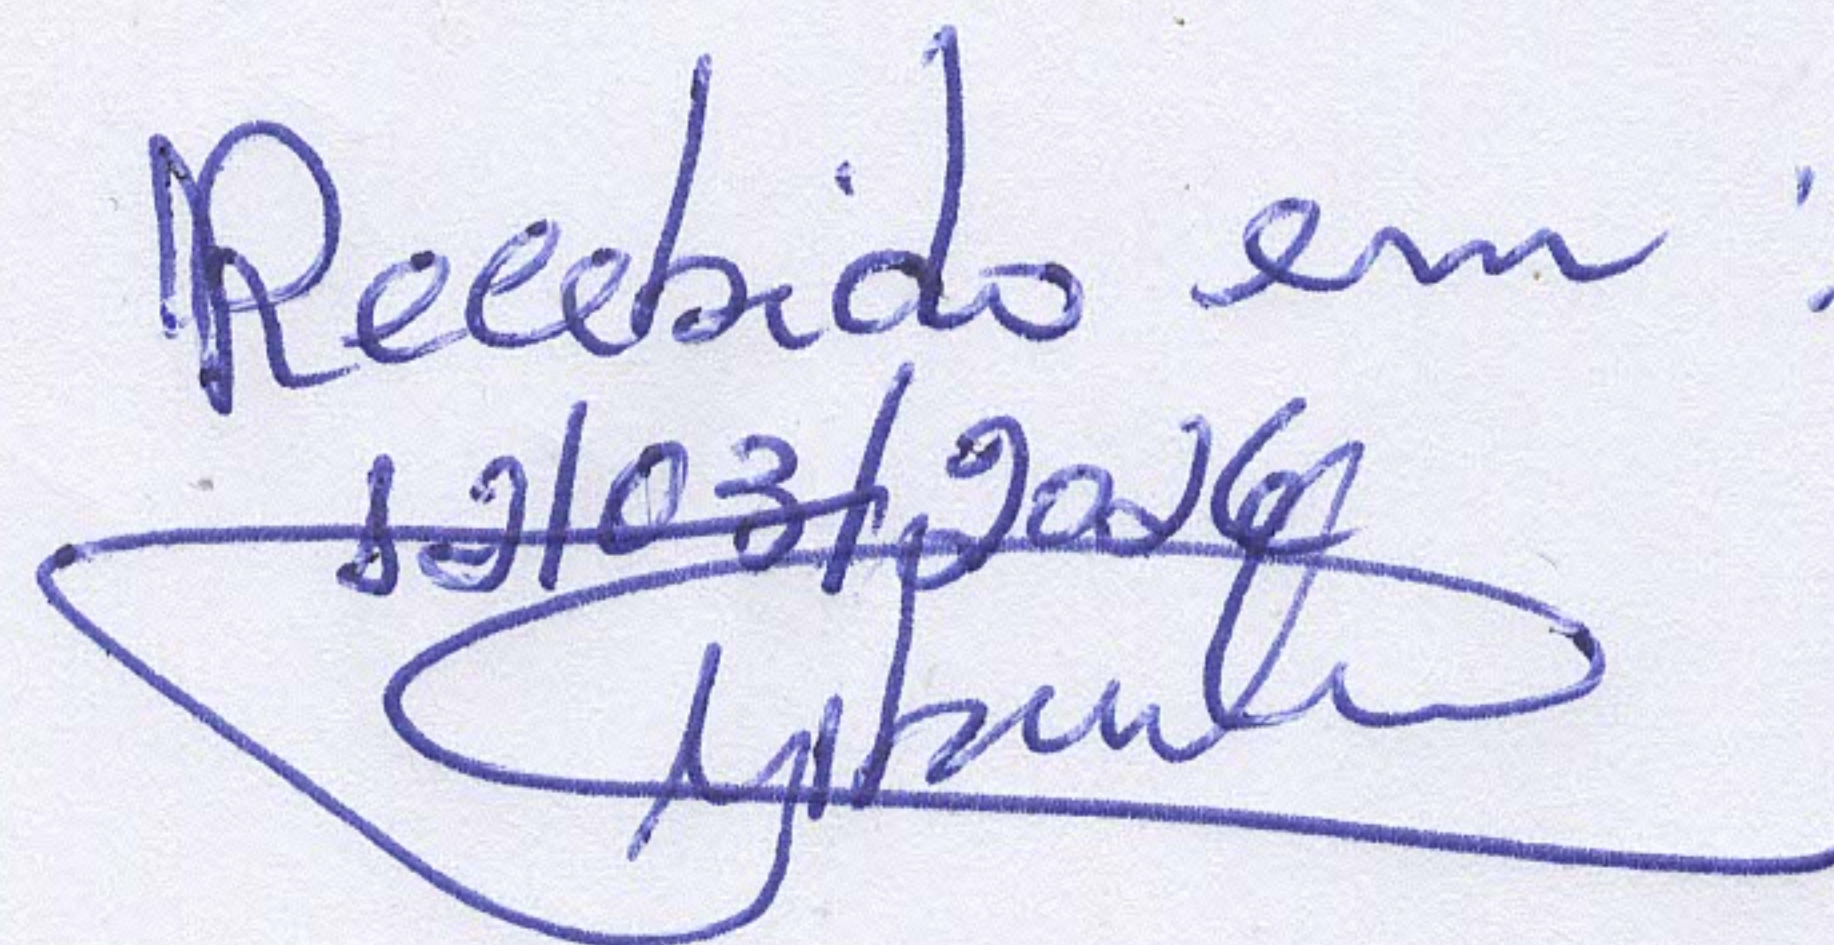 Recebido em:
12/03/2026